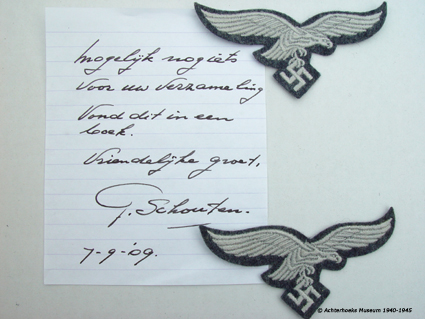 Mogelijk nog iets
voor uw verzameling
Vond dit in een
boek.
Vriendelijke groet,
G. Schouten.
7-9-'09.
© Achterhoeks Museum 1940-1945